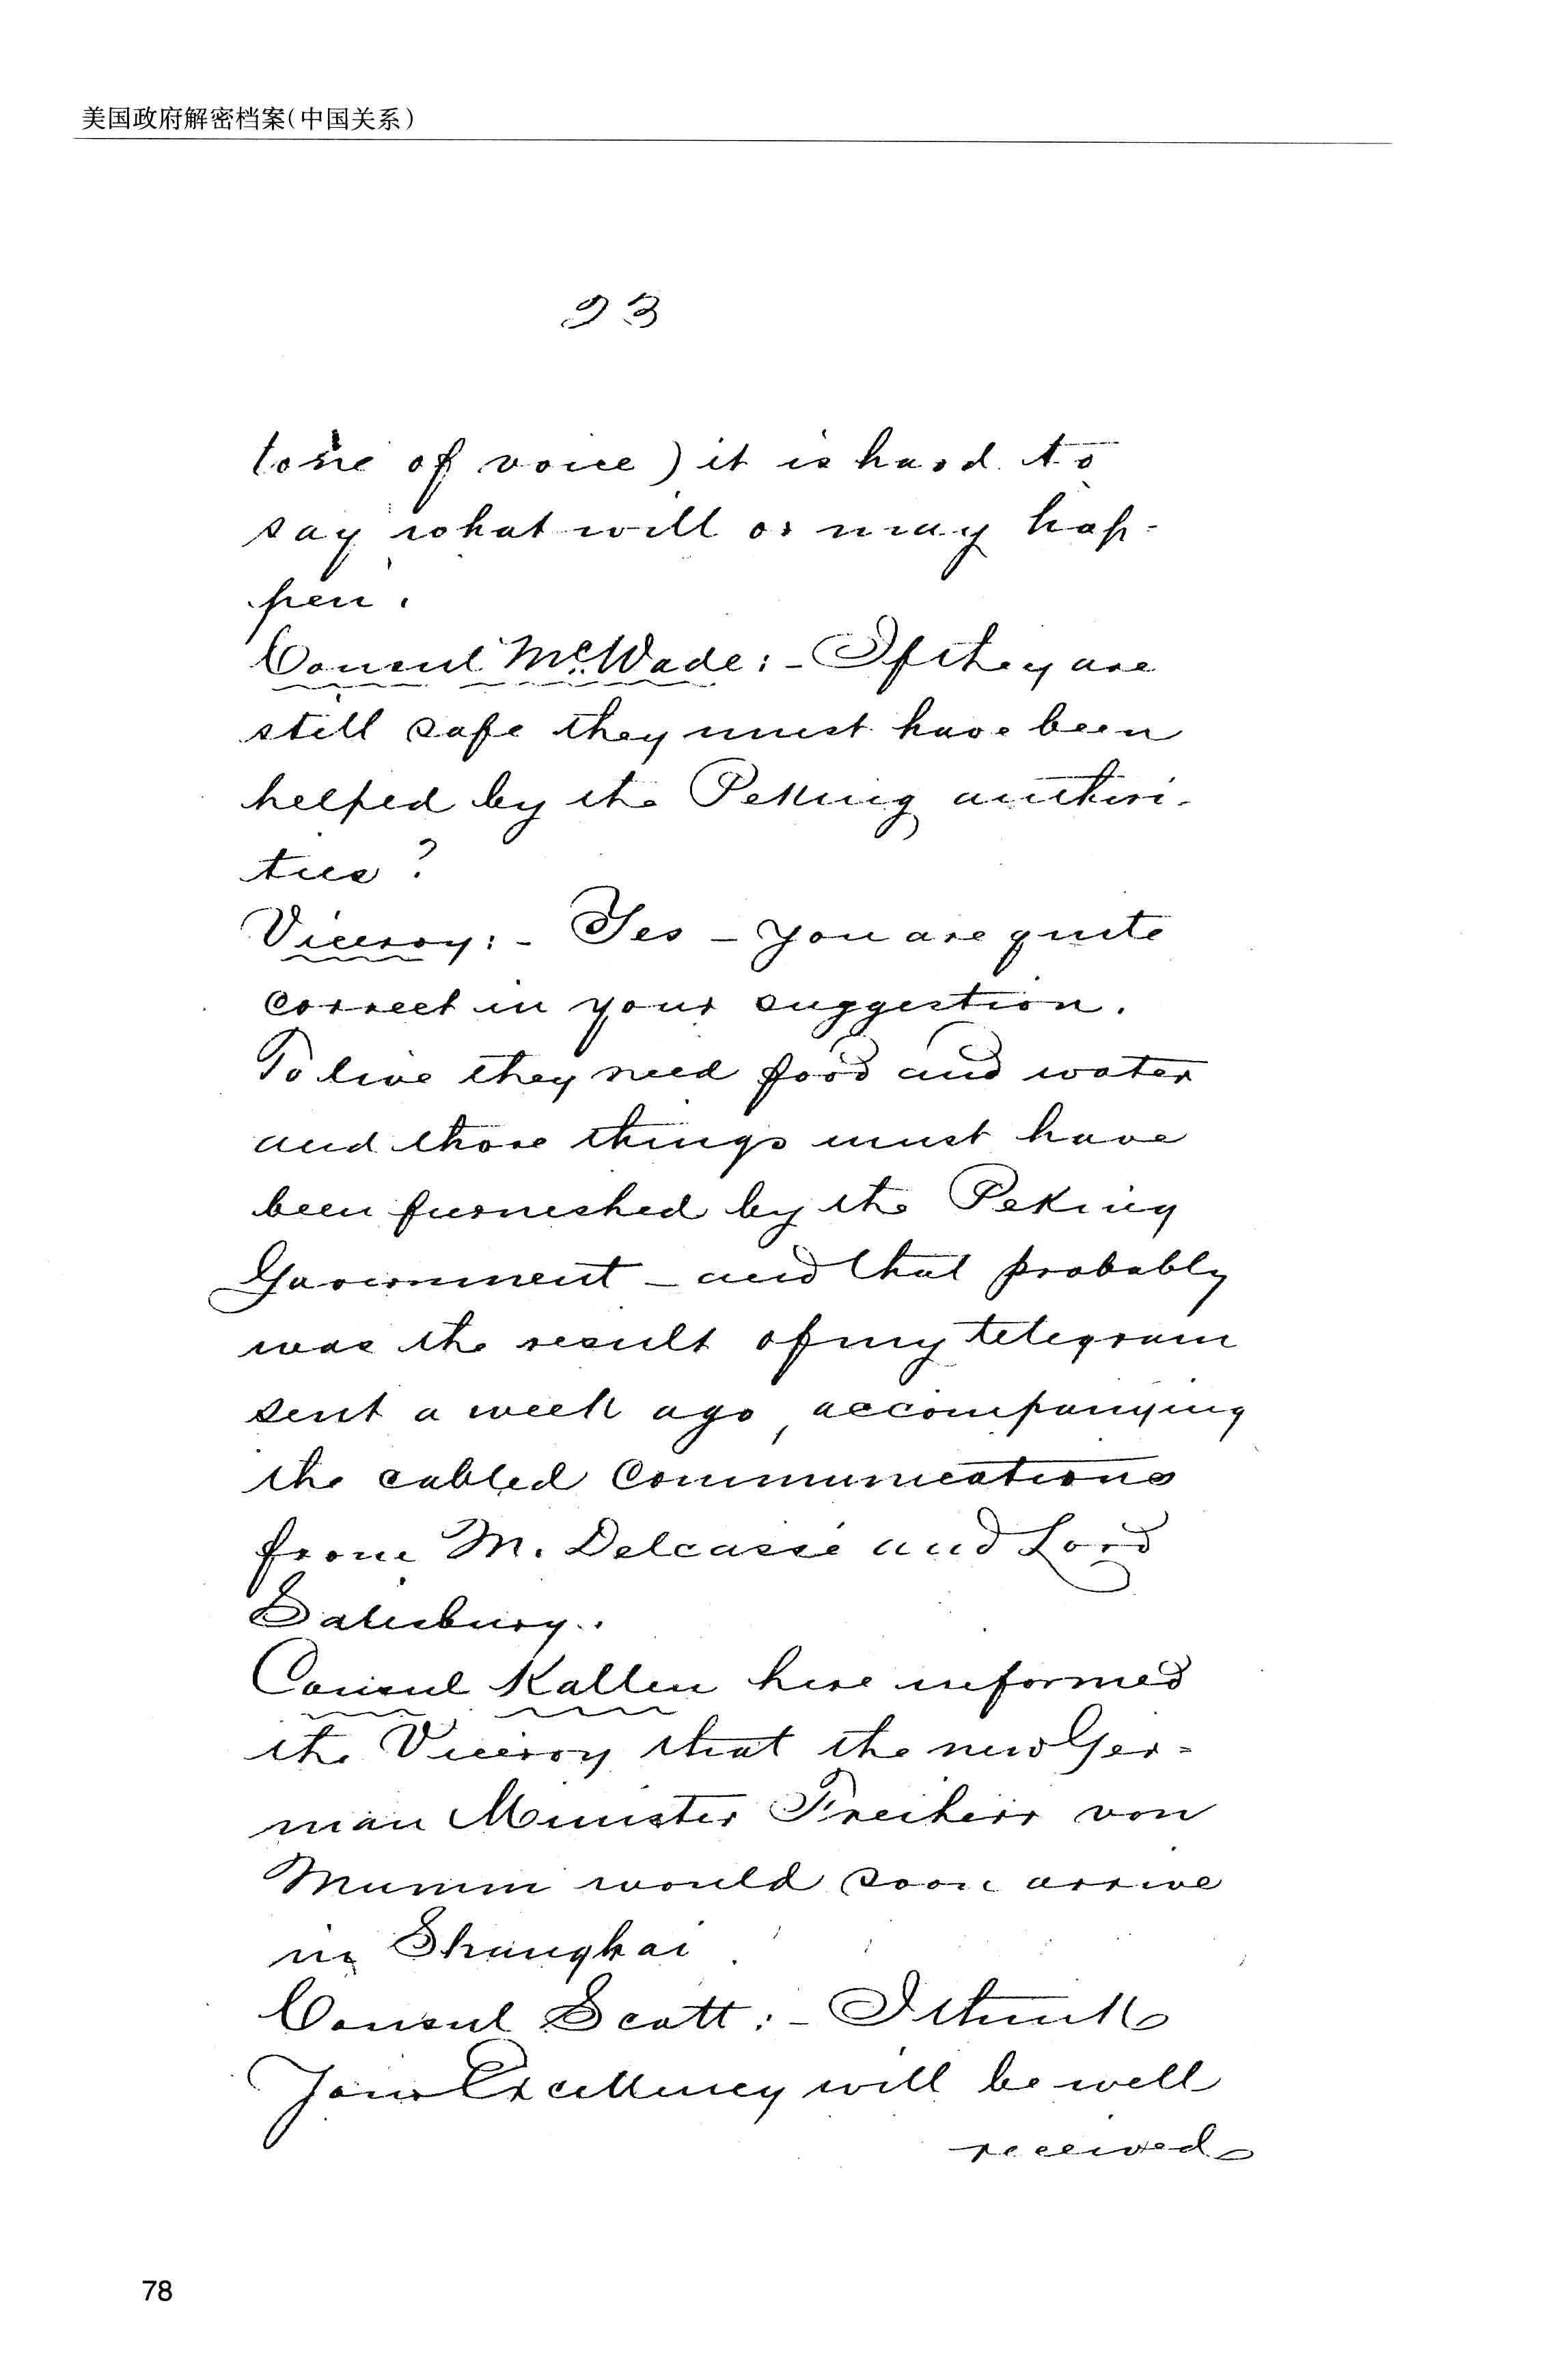 美国政府解密档案(中国关系)
23
tone of voice) it is hard to
say what will or may hap-
pen.
Consul McWade:- If they are
still safe they must have been
helped by the Peking authori-
ties?
Viceroy:- Yes - you are quite
correct in your suggestion.
To live they need food and water
and those things must have
been furnished by the Peking
Government - and that probably
was the result of my telegram
sent a week ago, accompanying
the cabled communications
from M. Delcassé and Lord
Salisbury.
Consul Kallen here informed
the Viceroy that the new Ger-
man Minister Freiherr von
Mumm would soon arrive
in Shanghai.
Consul Scott:- I think
Your Excellency will be well
received
78